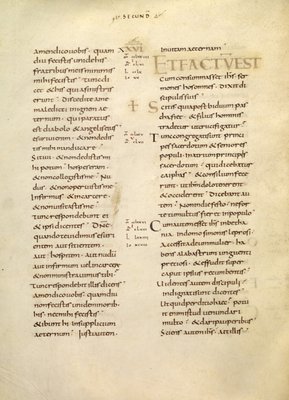 SECUND
Amendicouobis. quam
diu fecistis unidehis
fratribus meis minimis
mihi fecistis. Tunc di
cet & his quiasinistris
erunt. Discedite ame
maledicti inignem ae
ternum. qui paratus
est diabolo & angelis eius
esuriui enim. & nondedis
tis mihi manducare
Sitiui. & nondedistis m
ihi potum. hospes eram.
& noncollegistis me. Nu
dus & nonoperuistis me
Infirmus & incarcere
& nonuisitastis me.
Tunc respondebunt ei
& ipsi dicentes. Dne
quando te uidimus esuri
entem. aut sitientem.
Aut hospitem. aut nudu
aut infirmum uel incarcer
& nonministrauimus tibi
Tunc respondebit illis dicens
Amendico uobis. quamdiu
nonfecistis uni deminorib
his. nec mihi fecistis
& ibunt hi insupplicium
aeternum. Iusti autem
XXVI
Inuitam aeternam.
ET FACTUM EST
Cum consummasset ihs ser
mones hos omnes. dixit di
scipulis suis
Scitis quia post biduum pas
cha fiet. & filius hominis
tradetur ut crucifigatur
Tunc congregati sunt princi
pes sacerdotum & seniores
populi. inatrium principis
sacerdotum. qui dicebatur
caiphas. & consilium fece
runt. ut ihm dolo tenerent
& occiderent. Dicebant au
tem. Non in die festo. ne for
te tumultus fieret in populo
Cum autem esset ihs in betha
nia. Indomo simonis leprosi
Accessit ad eum mulier ha
bens alabastrum unguenti
pretiosi. & effudit super
caput ipsius recumbentis
Uidentes autem discipuli
indignati sunt dicentes
Ut quid perditio haec. potu
it enim istud uenundari
multo. & dari pauperibus
Sciens autem ihs. ait illis.